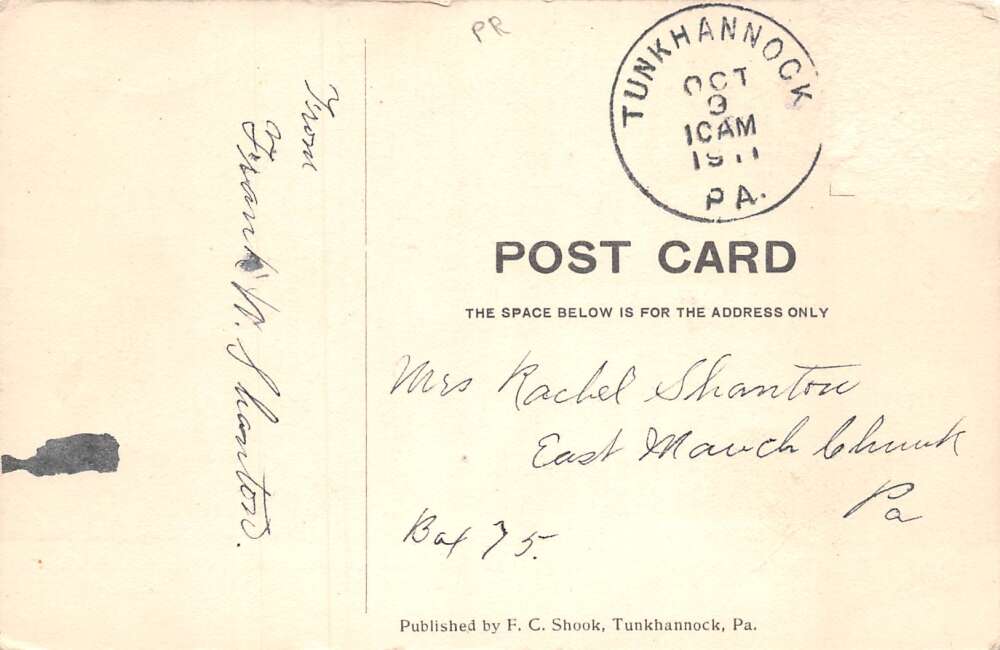 PR
TUNKHANNOCK
OCT
9
10AM
1911
PA.
From
Frank W. Shanton.
POST CARD
THE SPACE BELOW IS FOR THE ADDRESS ONLY
Mrs Rachel Shanton
East Mauch Chunk
Pa
Box 75.
Published by F. C. Shook, Tunkhannock, Pa.